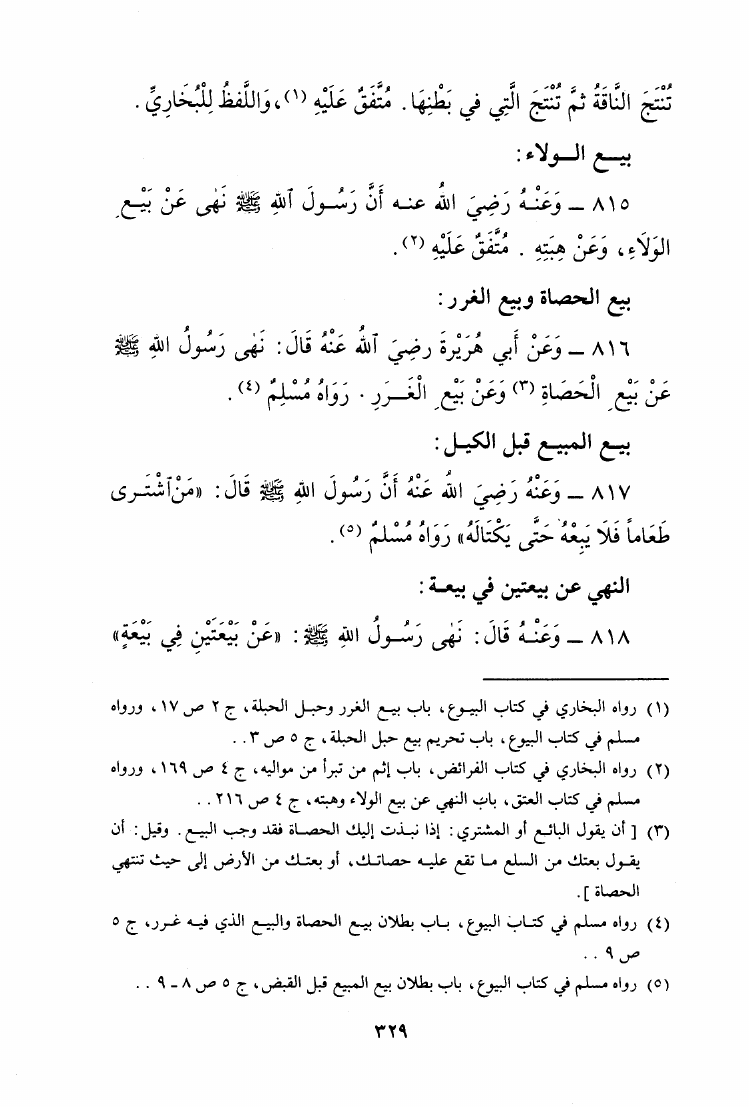 تُنْتَجَ النَّاقَةُ ثمَّ تُنْتَجَ الَّتِي في بَطْنِهَا. مُتَّفَقٌ عَلَيْهِ (١)، وَاللَّفظُ لِلْبُخَارِيِّ.
بيـع الـولاء:
٨١٥ ـ وَعَنْهُ رَضِيَ اللهُ عنه أَنَّ رَسُولَ ٱللهِ ﷺ نَهٰى عَنْ بَيْعِ
الوَلَاءِ، وَعَنْ هِبَتِهِ . مُتَّفَقٌ عَلَيْهِ (٢).
بيع الحصاة وبيع الغرر:
٨١٦ ـ وَعَنْ أَبي هُرَيْرةَ رضِيَ ٱللهُ عَنْهُ قَالَ: نَهٰى رَسُولُ اللهِ ﷺ
عَنْ بَيْعِ الْحَصَاةِ (٣) وَعَنْ بَيْعِ الْغَـرَرِ . رَوَاهُ مُسْلِمٌ (٤).
بيـع المبيـع قبل الكيـل:
٨١٧ ـ وَعَنْهُ رَضِيَ اللهُ عَنْهُ أَنَّ رَسُولَ اللهِ ﷺ قَالَ: «مَنْ ٱشْتَـرى
طَعَاماً فَلَا يَبِعْهُ حَتَّى يَكْتَالَهُ» رَوَاهُ مُسْلِمٌ (٥).
النهي عن بيعتين في بيعـة:
٨١٨ ـ وَعَنْهُ قَالَ: نَهٰى رَسُـولُ اللهِ ﷺ: «عَنْ بَيْعَتَيْنِ فِي بَيْعَةٍ»
(١) رواه البخاري في كتاب البيـوع، باب بيـع الغرر وحبـل الحبلة، ج ٢ ص ١٧، ورواه
مسلم في كتاب البيوع، باب تحريم بيع حبل الحبلة، ج ٥ ص ٣..
(٢) رواه البخاري في كتاب الفرائض، باب إثم من تبرأ من مواليه، ج ٤ ص ١٦٩، ورواه
مسلم في كتاب العتق، باب النهي عن بيع الولاء وهبته، ج ٤ ص ٢١٦..
(٣) [أن يقول البائـع أو المشتري: إذا نبـذت إليك الحصـاة فقد وجب البيـع. وقيل: أن
يقـول بعتك من السلع مـا تقع عليـه حصاتـك، أو بعتـك من الأرض إلى حيث تنتهي
الحصاة].
(٤) رواه مسلم في كتـاب البيوع، بـاب بطلان بيـع الحصاة والبيـع الذي فيـه غـرر، ج ٥
ص ٩..
(٥) رواه مسلم في كتاب البيوع، باب بطلان بيع المبيع قبل القبض، ج ٥ ص ٨ ـ ٩..
٣٢٩